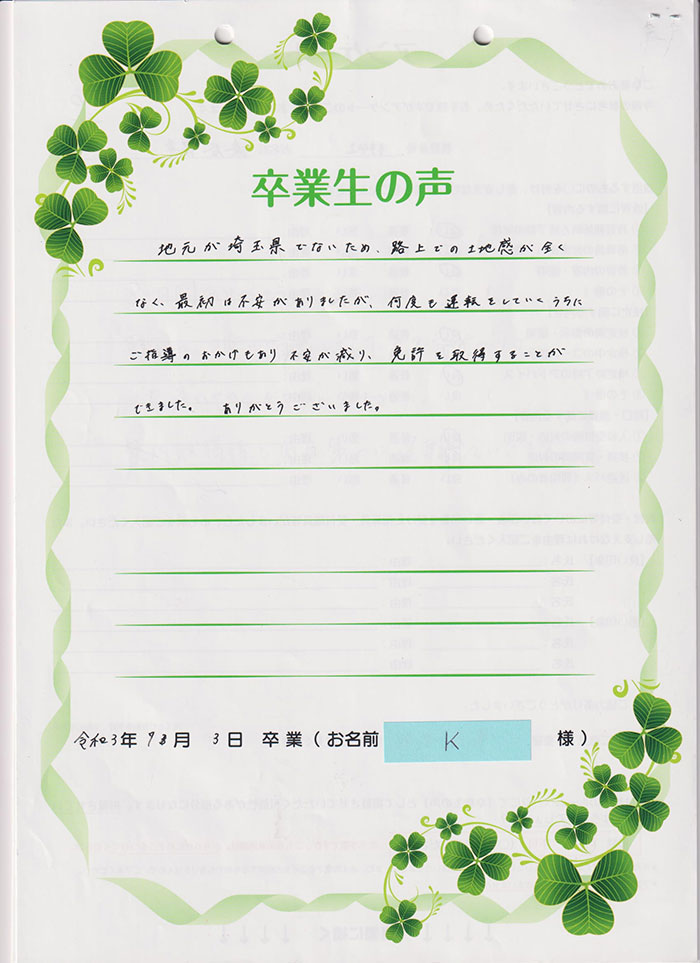 卒業生の声
地元が埼玉県でないため、路上での土地感が全く
なく、最初は不安がありましたが、何度も運転をしていくうちに
ご指導のおかげもあり不安が減り、免許を取得することが
できました。 ありがとうございました。
令和3年 月 3日 卒業(お名前 K 様)